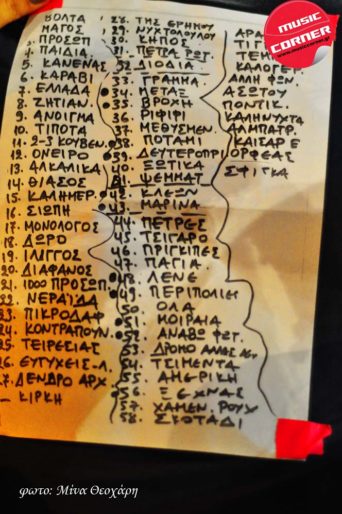 MUSIC
CORNER
www.musiccorner.gr
ΒΟΛΤΑ
ΜΑΓΟΣ
3. ΠΡΟΣΩΠ
4. ΠΑΙΔΙΑ
5. ΚΑΝΕΝΑΣ
6. ΚΑΡΑΒΙ
7. ΕΛΛΑΔΑ
8. ΖΗΤΙΑΝ
9. ΑΝΟΙΓΜΑ
10. ΤΙΠΟΤΑ
11. 2-3 ΚΟΥΒΕΝ.
12. ΟΝΕΙΡΟ
13. ΑΛΚΑΛΙΚΑ
14. ΘΙΑΣΟΣ
15. ΚΑΛΗΜΕΡ.
16. ΣΙΩΠΗ
17. ΜΟΝΟΛΟΓΟΣ
18. ΔΩΡΟ
19. ΙΛΙΓΓΟΣ
20. ΔΙΑΦΑΝΟΣ
21. 1000 ΠΡΟΣΩΠ.
22. ΝΕΡΑΪΔΑ
23. ΠΙΚΡΟΔΑΦ
24. ΚΟΝΤΡΑΠΟΥΝ.
25. ΤΕΙΡΕΣΙΑΣ
26. ΕΥΤΥΧΕΙΣ-Λ.
27. ΔΕΝΔΡΟ ΑΡΧ.
_ ΚΙΡΚΗ
28. ΤΗΣ ΕΡΗΜΟΥ
29. ΝΥΧΤΟΠΟΥΛΟΥ
30. ΚΗΠΟΣ
31. ΠΕΤΡΑ ΡΩΤ.
32. ΔΙΟΔΙΑ
33. ΓΡΑΜΜΑ
34. ΜΕΤΑΞ
35. ΒΡΟΧΗ
36. ΡΙΦΙΦΙ
37. ΜΕΘΥΣΜΕΝ.
38. ΠΟΤΑΜΙ
39. ΔΕΥΤΕΡΟΠΡΙ
40. ΞΩΤΙΚΑ
41. ΨΕΜΜΑΤ
42. ΚΛΕΩΝ
43. ΜΑΡΙΝΑ
44. ΠΕΤΡΕΣ
45. ΤΣΙΓΑΡΟ
46. ΠΡΙΓΚΙΠΕΣ
47. ΠΑΓΙΑ
48. ΛΕΝΕ
49. ΠΕΡΙΠΟΛΙΕΙ
50. ΟΛΑ
51. ΜΟΙΡΑΙΑ
52. ΑΝΑΒΩ ΦΩΤ.
53. ΔΡΟΜΟ
54. ΤΣΙΜΕΝΤΑ
55. ΑΜΕΡΙΚΗ
56. ΞΕΧΝΑΣ
57. ΧΑΜΕΝ. ΡΟΥΧ
58. ΣΚΟΤΑΔΙ
ΚΑΛΟΓΕΡ.
ΑΛΛΗ ΦΩΝ.
ΑΣΩΤΟΥ
ΠΟΝΤΙΚ.
ΚΑΛΗΝΥΧΤΑ
ΑΛΜΠΑΤΡ.
ΚΑΙΣΑΡΕ
ΟΡΦΕΑΣ
ΣΦΙΓΚΑ
φωτο: Μίνα Θεοχάρη